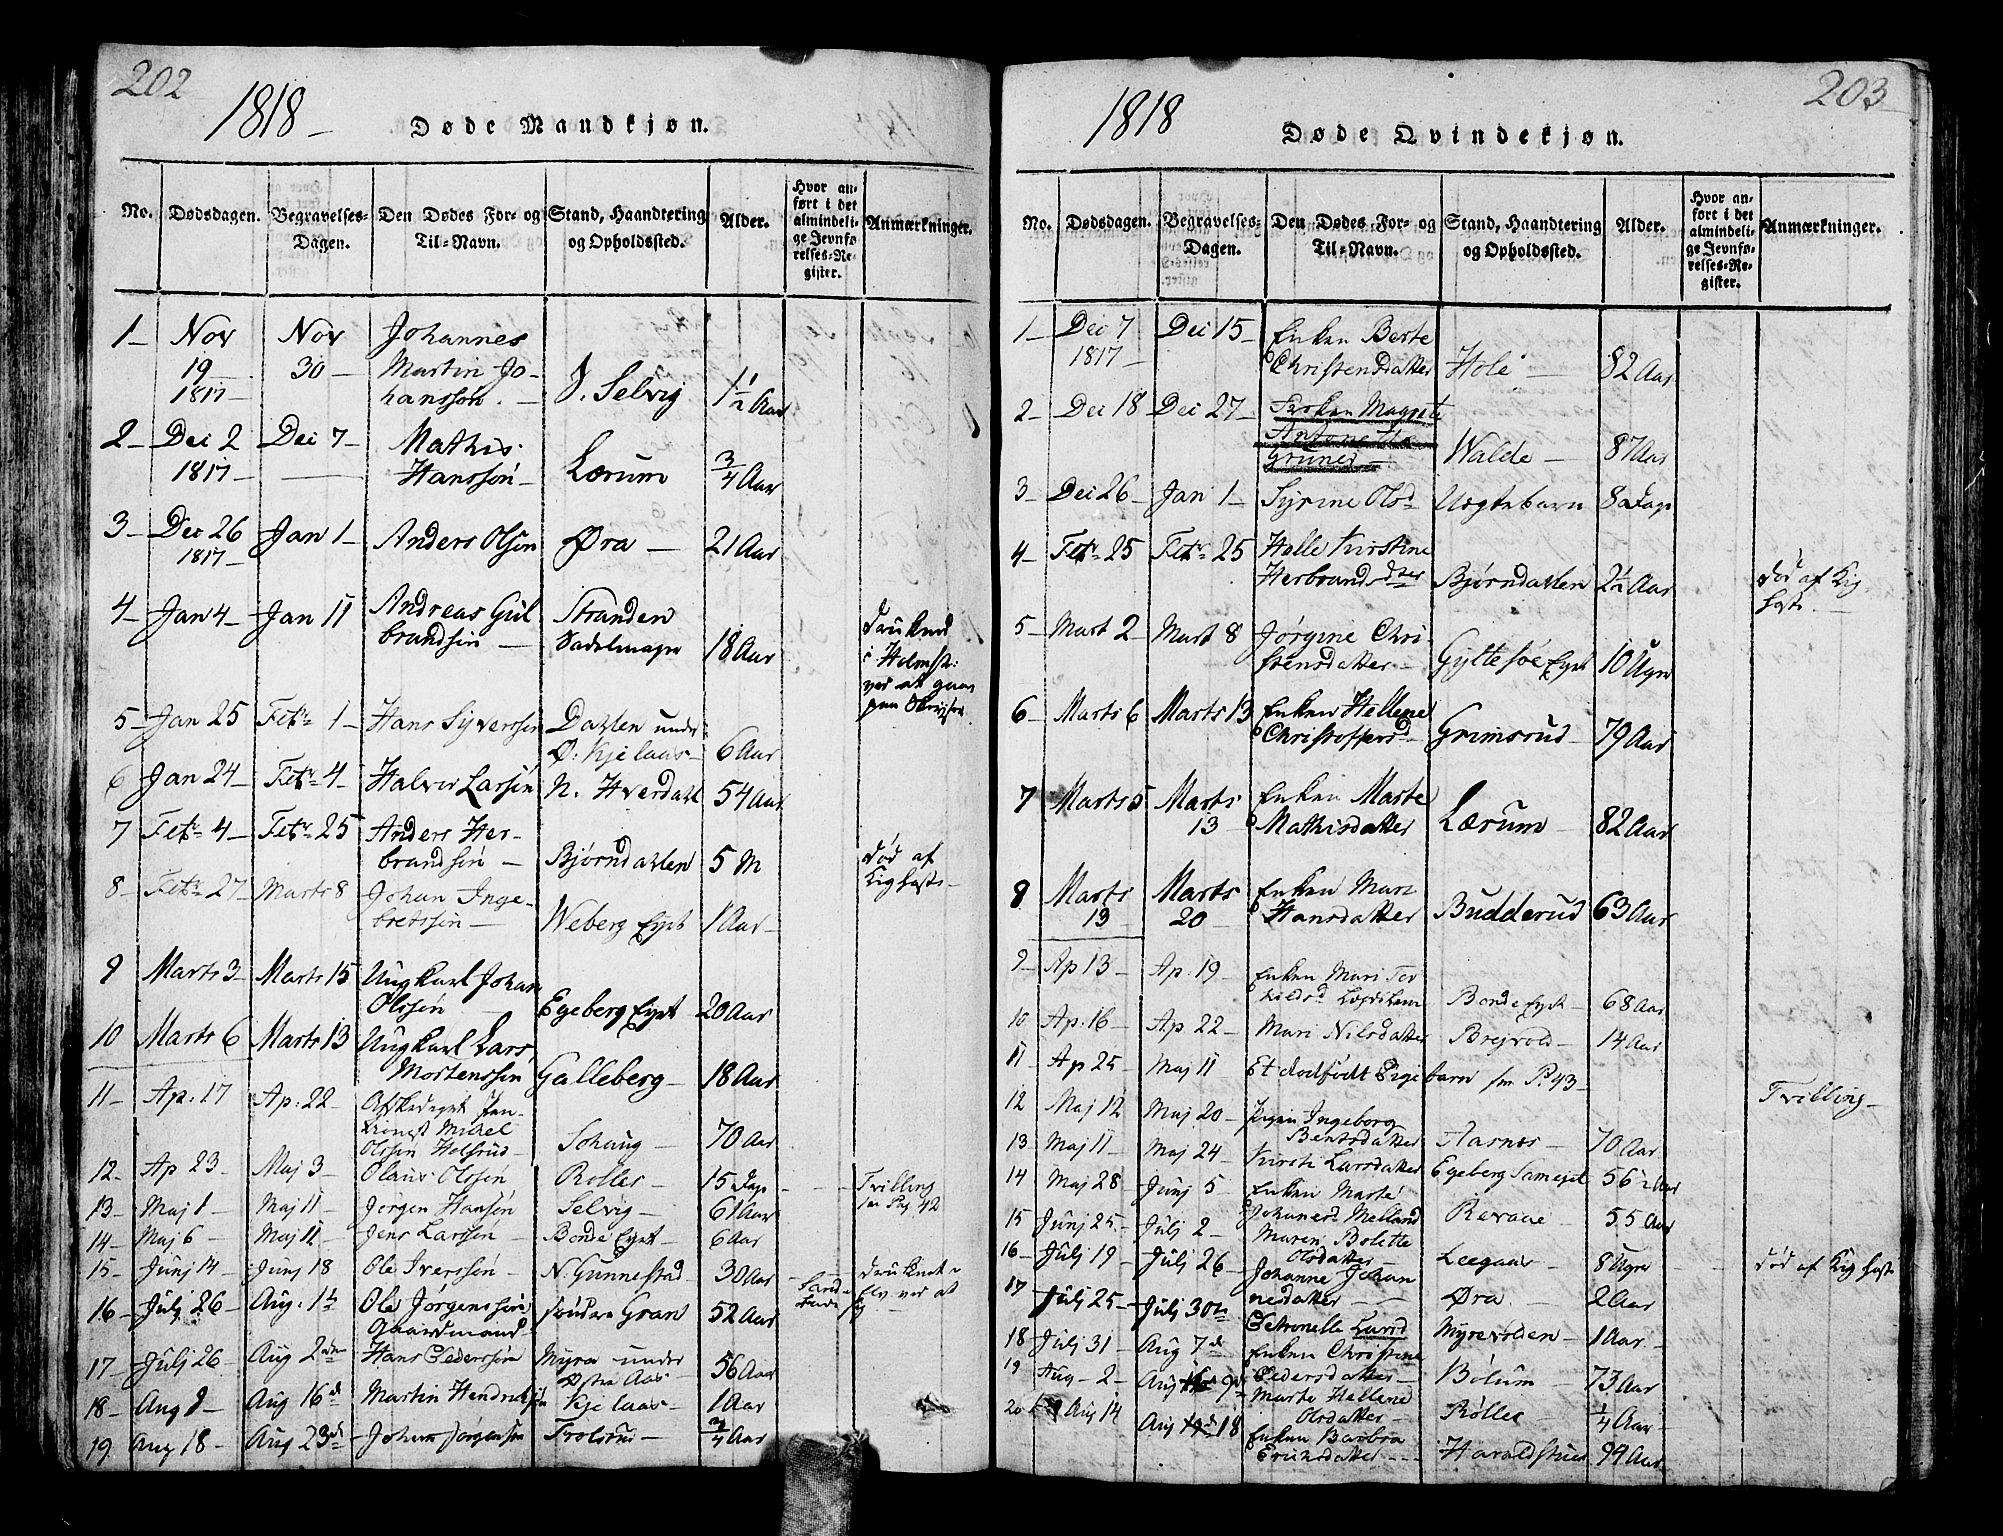 202
1818 –
Døde Mandkjøn.
No.
Dødsdagen.
Begravelses-
Dagen.
Den Dødes For- og
Til-Navn.
Stand, Haandtering
og Opholdssted.
Alder.
Hvor an-
ført i det
almindeli-
ge Jevnfø-
relses-Re-
gister.
Anmærkninger.
1 – Nov Nov Johannes
19 – 30 – Martin Jo-
1817 – hanssøn. – Selvig 1½ Aar
2 – Dec 2 Dec 7 – Mathis
1817 – Hanssøn – Lærum ¾ Aar
3 – Dec 26 Jan 1 – Anders Olsøn Øra – 21 Aar
1817 –
4 – Jan 4 – Jan 11 Andreas Gul
brandsøn – Stranden
Sadelmager 18 Aar
Druknede
i Holmest:
ved at gaae
paa
5 – Jan 25 Febr 1 – Hans Syverssøn Dahlen under
Ø. Kjelaas – 6 Aar
6 Jan 24 – Febr 4 – Halvor Larsøn N. Hverdahl 54 Aar
7 Febr 4 – Febr 25 Anders Her-
brandsøn – Bjørndahlen 5 M
død af
Kighoste –
8 – Febr 27 – Marts 8 Johan Inge-
bretssøn – Weberg Eyet 1 Aar –
9 Marts 3 – Marts 15 Ungkarl Johan
Olssøn Egeberg Eyet 20 Aar
10 Marts 6 Marts 13 Ungkarl Lars
Mortenssøn Galleberg – 18 Aar
11 – Ap: 17 Ap: 22 – Afskediget Pen-
Michel
Olssøn Holsrud – Sohaug – 70 Aar
12 – Ap 23 – Maj 3 – Olaus Olssøn Rolles – 15 Dage
Tvilling
Pag 42
13 – Maj 1 – Maj 11 – Jørgen Hansøn Selvig – 61 Aar
14 – Maj 6 – Maj 11 – Jens Larssøn – Bonde Eyet – 6 Aar
15 – Junj 14 – Junj 18 Ole Iverssøn – N. Gunnestad – 30 Aar
16 – Julj 26 – Aug: 1 Ole Jørgenssøn
Gaardmand – søndre Gran 52 Aar
17 – Julj 26 – Aug 2 Hans Pederssøn Myra under
Aas – 56 Aar
18 – Aug 8 – Aug 16 Martin Hendrichsøn Kjelaas – 1 Aar
19. Aug 18 – Aug 23 Johan Jørgensøn Trolsrud – ¾ Aar
203
1818
Døde Qvindekjøn.
No.
Dødsdagen.
Begravelses-
Dagen.
Den Dødes For- og
Til-Navn.
Stand, Haandtering
og Opholdssted.
Alder.
Hvor an-
ført i det
almindeli-
ge Jevnfø-
relses-Re-
gister.
Anmærkninger.
1 – Dec 7 Dec 15 – Enken Berte
1817 – Christensdatter Hole – 82 Aar
2 – Dec 18 Dec 27 –
Walde – 87 Aar
3 – Dec 26 – Jan 1 – Syrine Olsd – Uegtebarn 8 Dage
4 – Febr 25 Febr 25 Helle Kirstine
Herbrandsdter Bjørndahlen 2½ Aar
død af Kig
hoste –
5 – Mart 2 Mart 8 Jørgine Chri-
stensdatter – Gyltesøe Eyet 10 Uger
6 – Marts 6 Marts 13 Enken Hellene
Christoffersd – Grimsrud – 79 Aar
7 Marts 5 Marts Enken Marte
13 Mathisdatter Lærum – 82 Aar
8 Marts Marts Enken Mari
13 20 – Hansdatter Budderud 63 Aar
9 – Ap 13 – Ap: 19 – Enken Mari Tor
kildsd Bonde Eyet – 68 Aar
10 – Ap: 16 – Ap 22 – Mari Nilsdatter Brejvold – 14 Aar
11 – Ap 25 – Maj 11 Et dødfødt Pige barn P: 43 –
12 Maj 12 Maj 20 – Pigen Ingeborg
Bentsdatter Aarnes – 70 Aar
Tvilling –
13 – Maj 11 – Maj 24 – Kirsti Larsdatter Egeberg 56½ Aar
14 Maj 28 Junj 5 – Enken Marte
Johanesd Melland Revaae 55 Aar
15 – Junj 25 – Julj 2 – Maren Bolette
Olsdatter – Leegaar – 8 Uger
død af Kighoste
16 – Julj 19 – Julj 26 – Johanne Johan
nesdatter – Øra – 2 Aar
17 Julj 25 – Julj 30 Petronelle Larsd Myrevolden – 1 Aar.
18 – Julj 31 – Aug 7 Enken Christine
Pedersdatter – Bølum – 73 Aar
19 Aug – 2 – Aug 9 Marte Hellene
Olsdatter – Røller – ¼ Aar –
20 Aug 14 Aug 18 Enken Barbra
Erichsdatter – Haraldstued 94 Aar